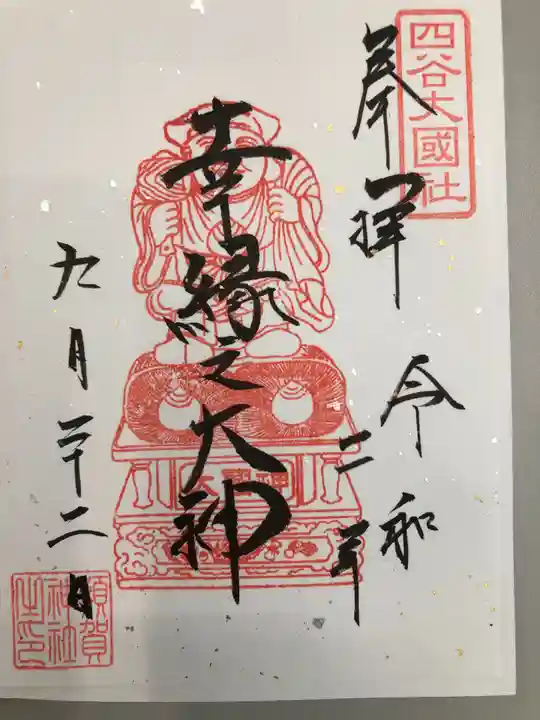 四谷大國社
奉拝
令和
二年
幸縁之大神
大國神
九月二十二日
須賀
神社
之印